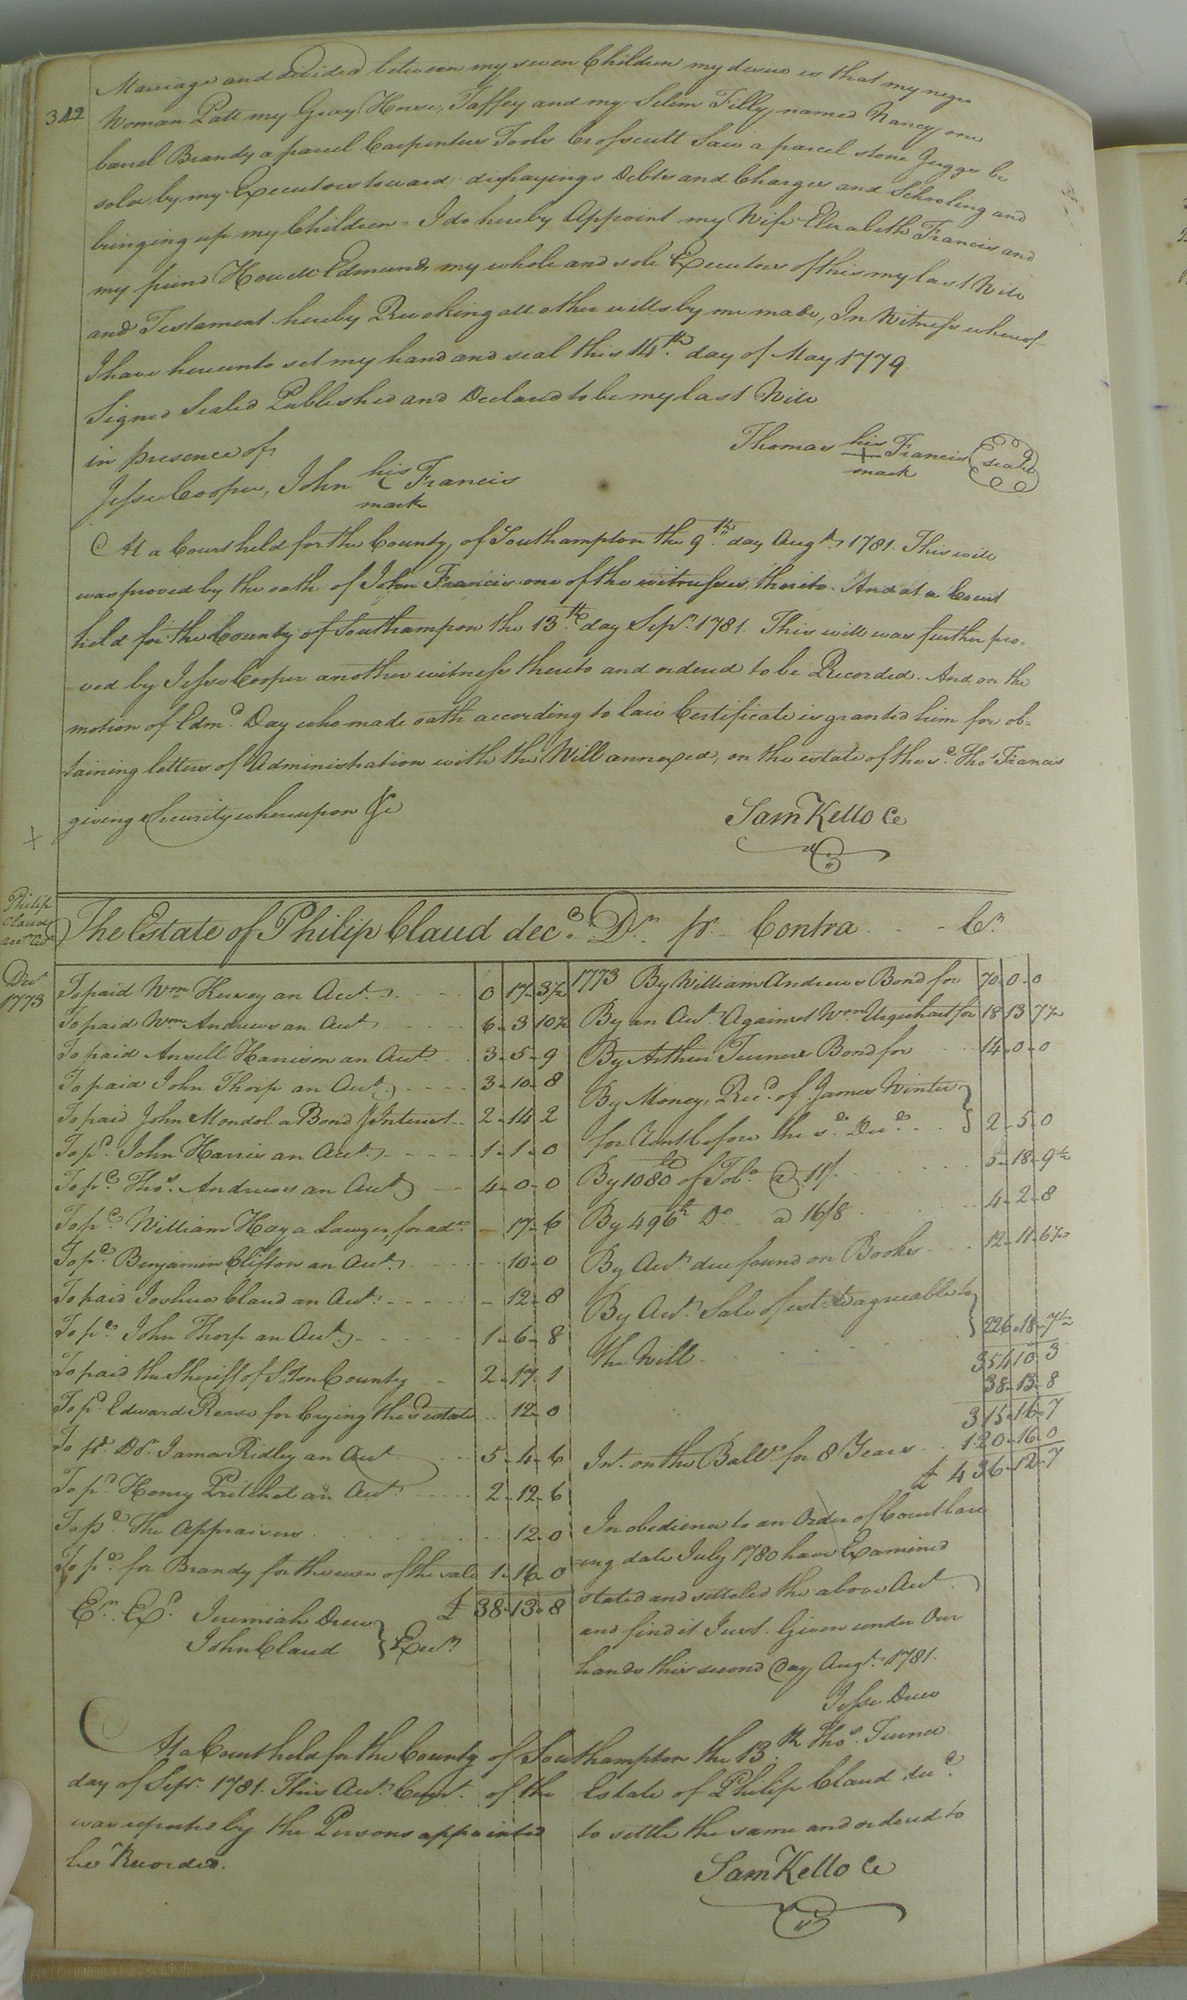 342
Marriage and divided between my seven Children my desire is that my negro
Woman Patt my Gray Horse, Taffey and my Selim Filly named Nancy one
barrel Brandy a parcel Carpenters Tools Crosscutt Saw a parcel stone Juggs be
sold by my Executors toward defrayings Debts and Charges and Schooling and
bringing up my Children - I do hereby Appoint my Wife Elizabeth Francis and
my friend Howell Edmunds my whole and sole Executors of this my last Will
and Testament hereby Revoking all other wills by me made, In Witness whereof
I have hereunto set my hand and seal this 14th. day of May 1779
Signed Sealed Published and Declared to be my last Will
in presence of
Thomas his + mark Francis (seal)
Jesse Cooper, John his mark Francis
At a Court held for the County, of Southampton the 9th. day Augt. 1781. This will
was proved by the oath of John Francis one of the witnesses thereto. And at a Court
held for the County of Southampton the 13th. day Sepr. 1781. This will was further pro-
-ved by Jesse Cooper another witness thereto and ordered to be Recorded. And on the
motion of Edmd. Day who made oath according to law Certificate is granted him for ob-
taining letters of Administration with the Will annexed, on the estate of the sd. Thos. Francis
giving Security whereupon &c
Sam Kello Cc
Philip
Claud
The Estate of Philip Claud decd. Dr. pr. Contra Cr.
Decr
1773
To paid Wm. Hervey an Acct. 0 17 3½
To paid Wm. Andrews an Acct. 6 - 3 10½
To paid Ansell Harrison an Acct. 3 - 5 - 9
To paid John Thorp an Acct. 3 - 10 - 8
To paid John Mondol a Bond & Interest 2 - 14 2
To pd. John Harris an Acct. 1 - 1 - 0
To pd. Thos. Andrews an Acct. 4 - 0 - 0
To pd. William Hay a Lawyer, for adce. - 17 - 6
To pd. Benjamin Clifton an Acct. 10 - 0
To paid Joshua Claud an Acct. - 12 - 8
To pd. John Thorp an Acct. 1 - 6 - 8
To paid the Sheriff of S.ton County 2 - 17 1
To pd. Edward Reave for Crying the sd estate 12 0
To pd. Dr. James Ridley an Acct 5 - 4 - 6
To pd. Henry Pritchet an Acct. 2 - 12 - 6
To pd. the Appraisers 12 - 0
To pd. for Brandy for the use of the sale 1 - 16 - 0
£ 38 - 13 - 8
Er. Exd. Jeremiah Drew
John Claud } Exrs.
1773 By William Andrews Bond for 70 - 0 - 0
By an Acct. Against Wm Urquhart for 18 13 7½
By Arthur Turners Bond for 14 - 0 - 0
By Money, Recd. of James Winter
for Rent before the sd. Decd. } 2 - 5 - 0
By 1080 lb of Tobo. @ 11/. 5 - 18 - 9½
By 496 lb Do. a 16/8 4 - 2 - 8
By Acct. due found on Books 12 - 11 - 6½
By Acct. Sale of estate agreeable to
the Will } 226 - 18 - 7½
354 10 3
38 - 13 - 8
315 - 16 - 7
Int. on the Balle. for 8 Years 120 - 16 - 0
£ 436 - 12 - 7
In obedience to an Order of Court bare
-ing date July 1780 have Examined
stated and setteled the above Acct.
and find it Just. Given under Our
hands this second Day Augt. 1781.
Jesse Drew
Thos. Turner
At a Court held for the County of Southampton the 13th.
day of Sepr. 1781. This Acct. Curt. of the Estate of Philip Claud decd.
was reported by the Persons appointed to settle the same and ordered to
be Recorded.
Sam Kello Cc